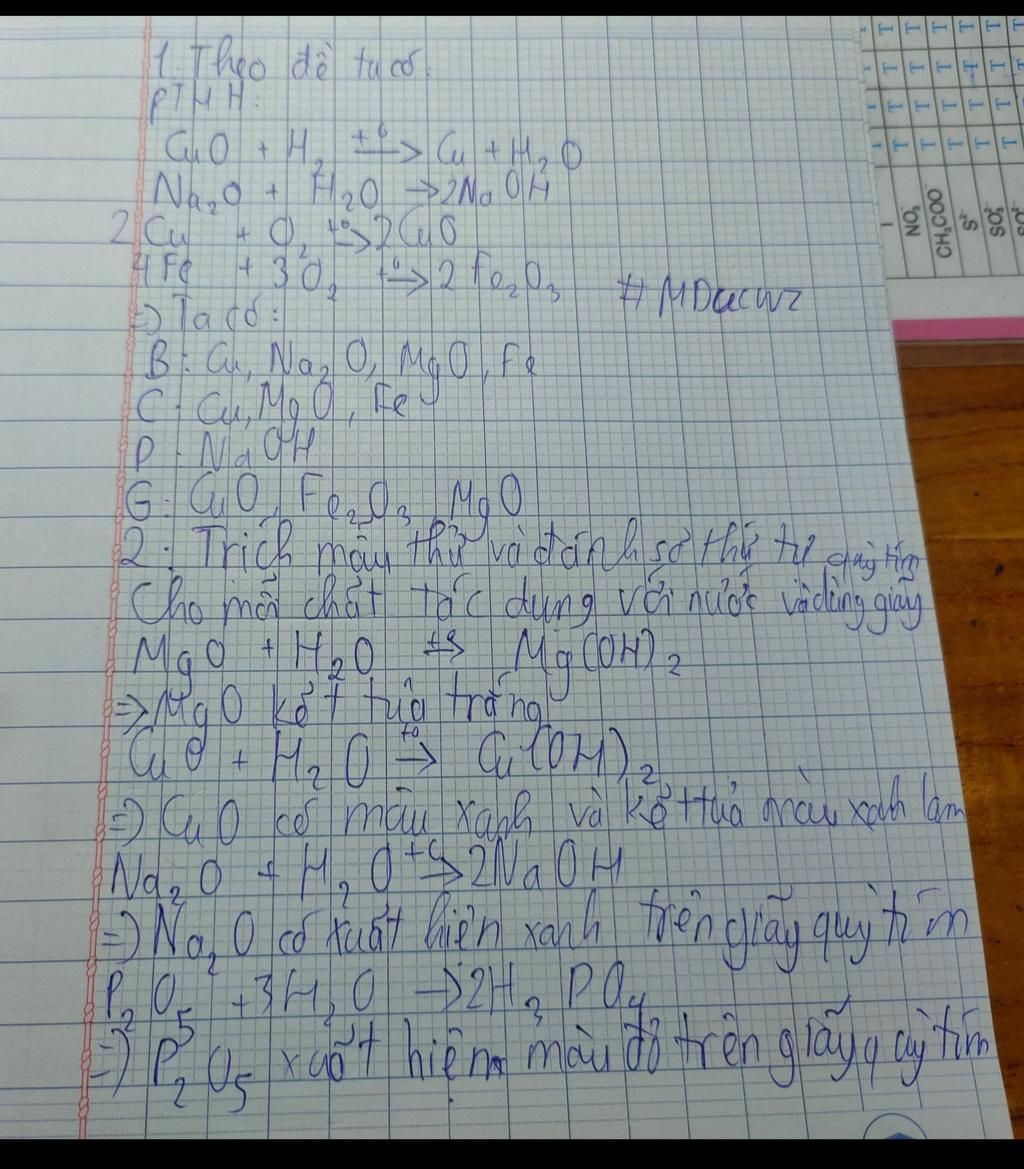 1. Theo đề ta có.
PTHH:
CuO + H₂ t⁰→ Cu + H₂O
Na₂O + H₂O → 2NaOH
2Cu + O₂ t⁰→ 2CuO
4Fe + 3O₂ t⁰→ 2Fe₂O₃
# MDucwz
=) Ta có:
B: Cu, Na₂O, MgO, Fe
C: Cu, MgO, Fe
D: NaOH
G: CuO, Fe₂O₃, MgO
2: Trích mẫu thử và đánh số thứ tự quỳ tím
Cho mỗi chất tác dụng với nước và dùng giấy
MgO + H₂O t⁰→ Mg(OH)₂
=> MgO kết tủa trắng
CuO + H₂O t⁰→ Cu(OH)₂
=) CuO có màu xanh và kết tủa màu xanh lam
Na₂O + H₂O t⁰→ 2NaOH
=) Na₂O có xuất hiện xanh trên giấy quỳ tím
P₂O₅ + 3H₂O → 2H₃PO₄
=) P₂O₅ xuất hiện màu đỏ trên giấy quỳ tím
I
NO₃⁻
CH₃COO
S²⁻
SO₃²⁻
T T T T T
T T T T T
T T T T T
T T T T T